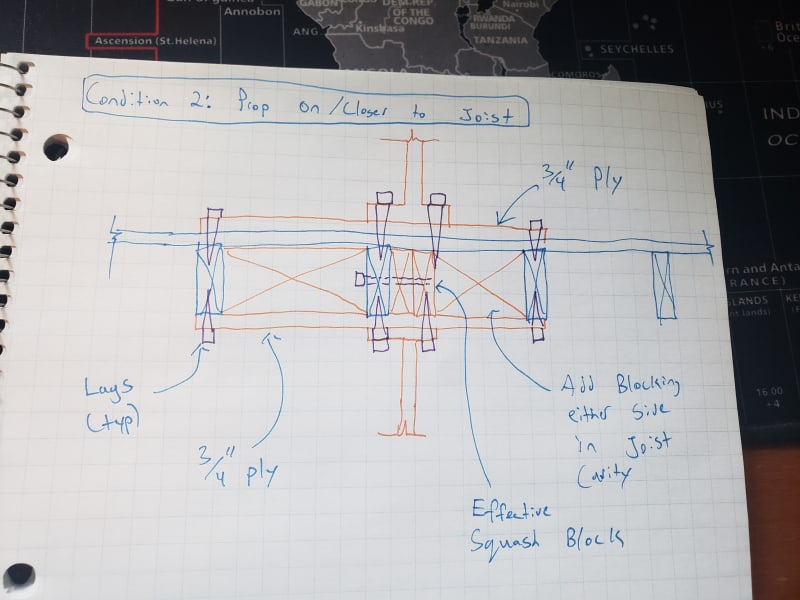 Annambon
GABON
DEM.REP.
OF THE
CONGO
Nairobi
RWANDA
BURUNDI
Ascension (St.Helena)
ANG.
Kinshasa
TANZANIA
SEYCHELLES
COMOROS
Condition 2: Prop on/Closer to Joist
3/4" Ply
IND
OC
rn and Anta
RANCE)
SLANDS
nt lands)
16.00
+4
Lags
(typ)
3/4" ply
Add Blocking
either Side
in Joist
Cavity
Effective
Squash Block